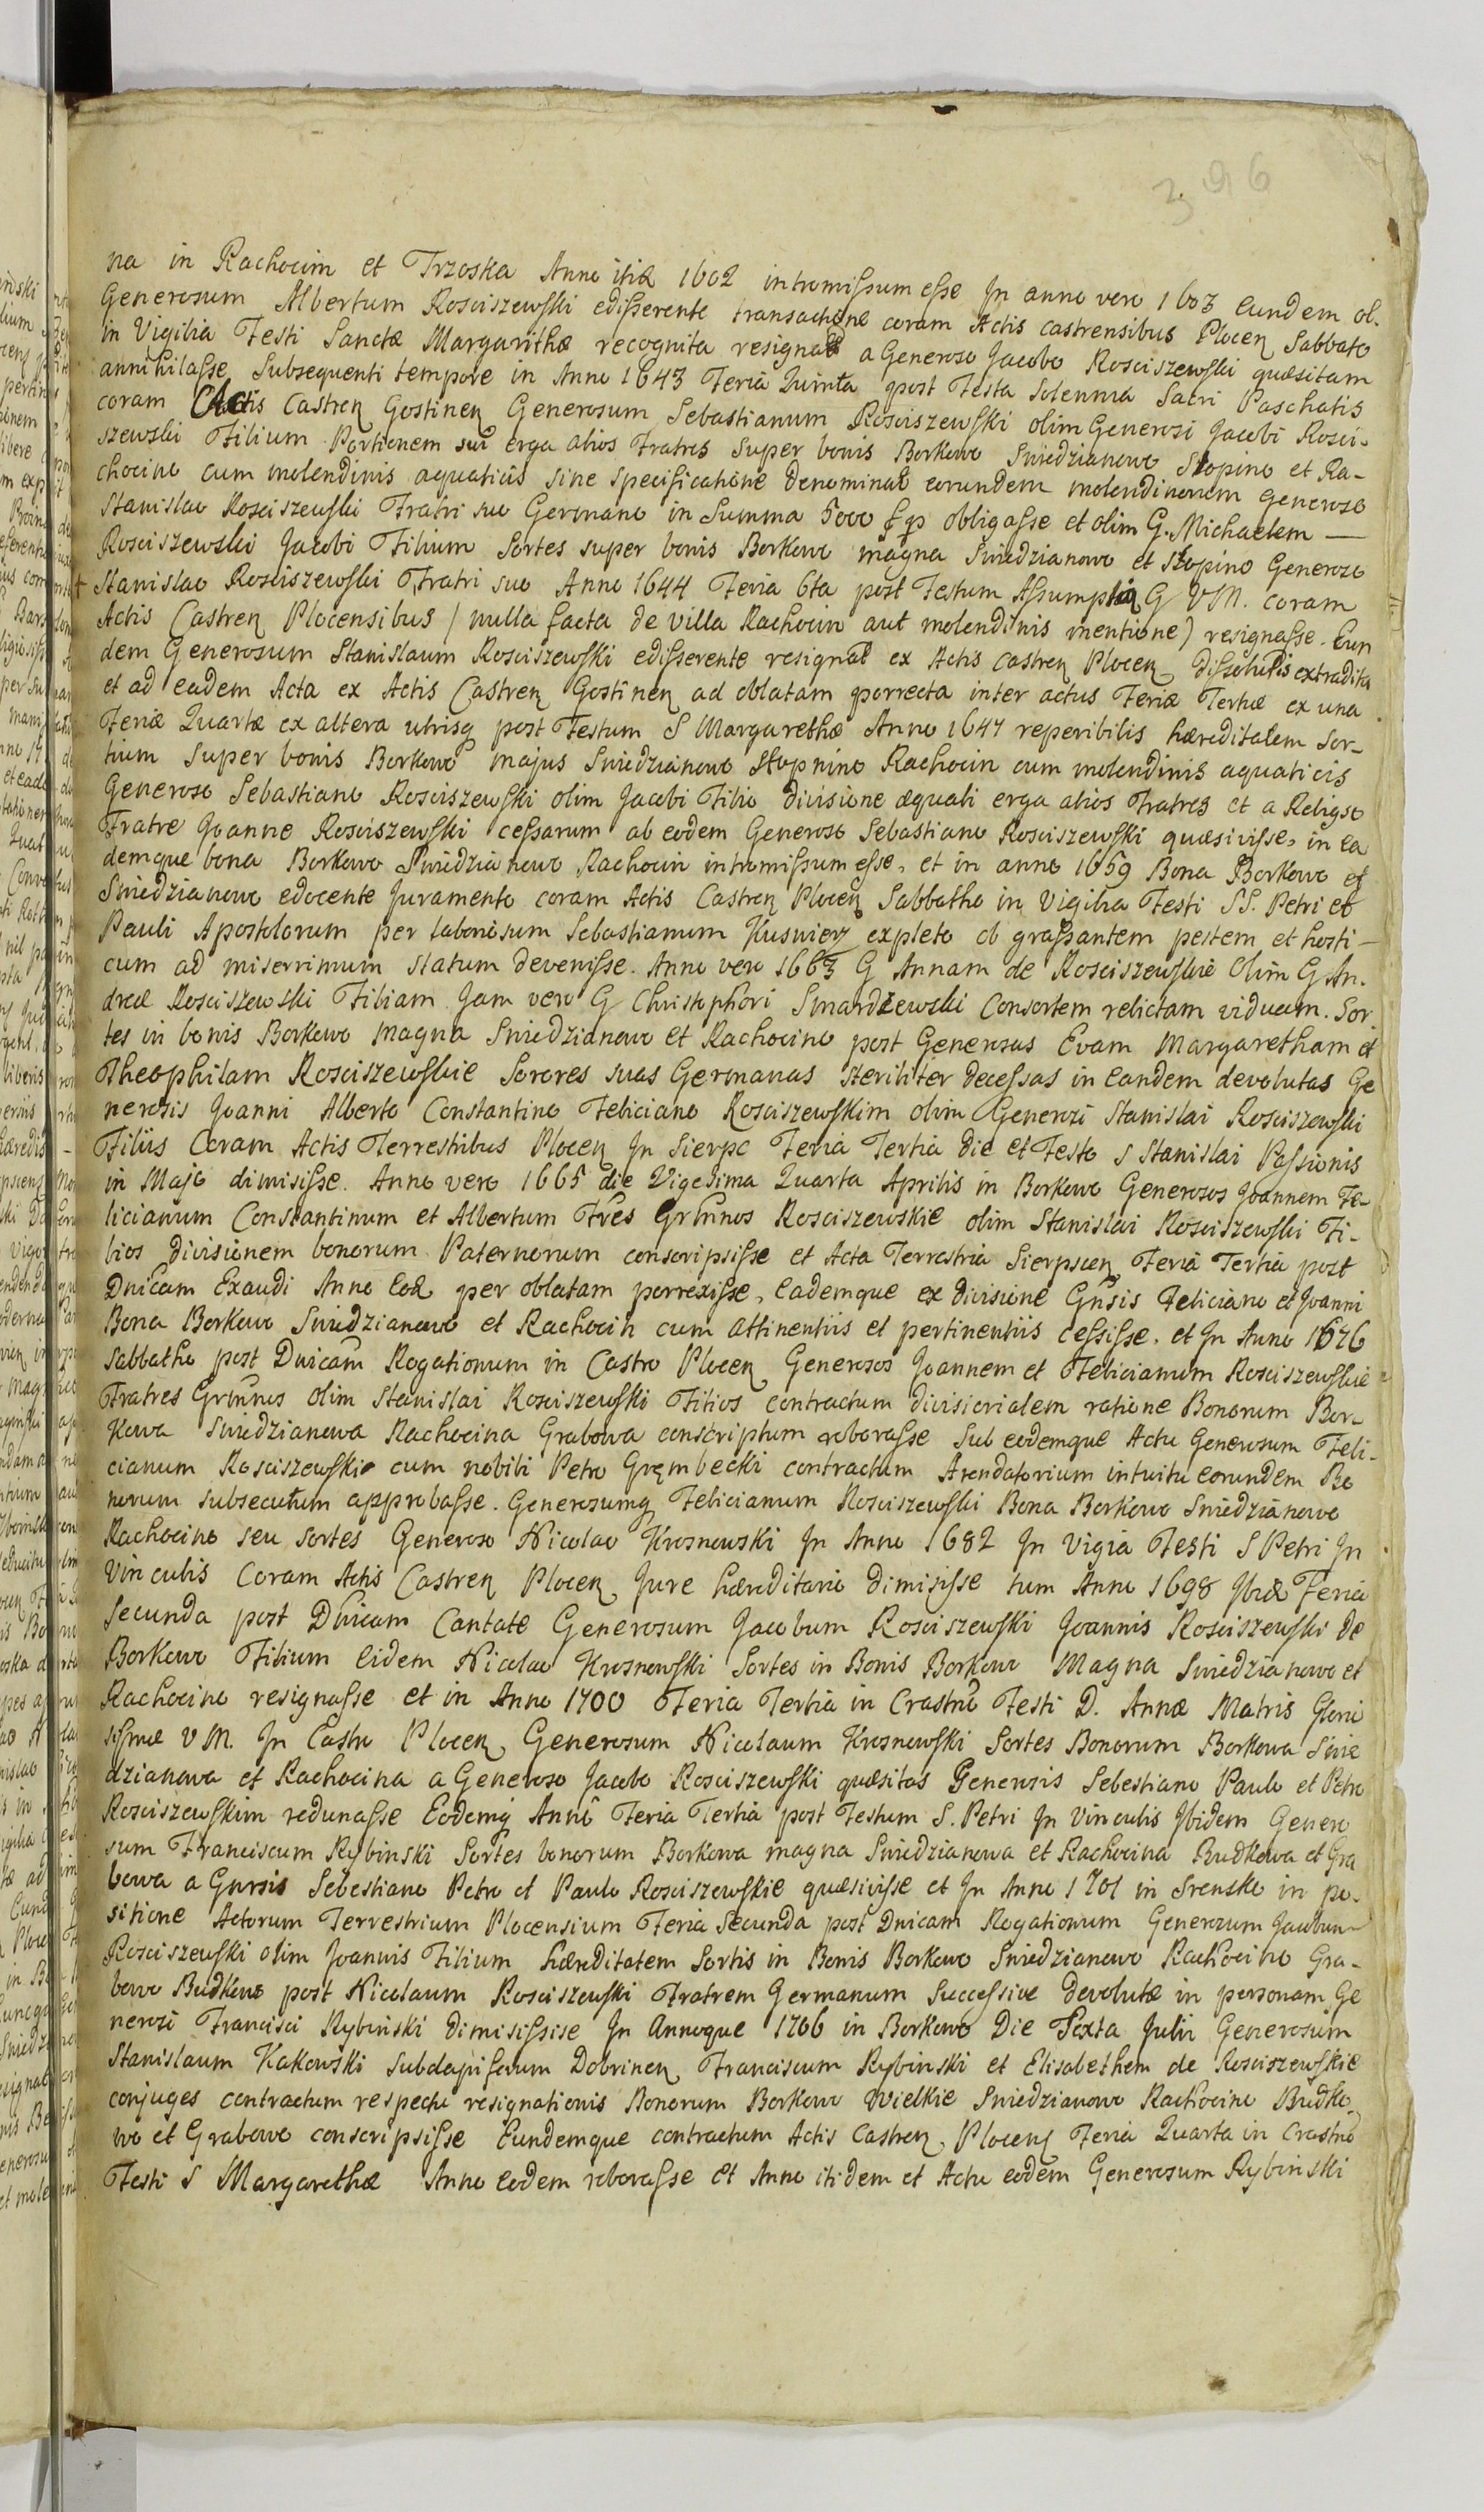 396
na in Rachocim et Trzaska Anno itid 1602 intromissum esse In anno vero 1603 eundem ol.
Generosum Albertum Rosciszewski edisserente transactione coram Actis castrensibus Plocen Sabbato
in Vigilia Festi Sanctæ Margarithæ recognita resignat a Generoso Jacobo Rosciszewski quæsitam
annihilasse, Subsequenti tempore in Anno 1643 Feria Quinta post Festa Solennia Sacri Paschatis
coram Actis Castren Gostinen Generosum Sebastianum Rosciszewski olim Generosi Jacobi Rosci-
szewski Filium Portionem sui erga alios Fratres super bonis Borkowo Sniedzianowo Stopino et Ra-
chocino cum molendinis aquaticis sine specificatione denominat eorundem molendinorum Generoso
Stanislao Rosciszewski Fratri suo Germano in Summa 5000 fl p obligasse et olim G. Michaelem —
Rosciszewski Jacobi Filium Sortes super bonis Borkowo magna Sniedzianowo et Stopino Generozo
+ Stanislao Rosciszewski Fratri suo Anno 1644 Feria 6ta post Festum Assumptio G V M. coram
Actis Castren Plocensibus / nulla facta de villa Rachocin aut molendinis mentione) resignasse. Eun
dem Generosum Stanislaum Rosciszewski edisserente resignat ex Actis castren Plocen dissolutis extradita
et ad eadem Acta ex Actis Castren Gostinen ad oblatam porrecta inter actus Feriæ Tertiæ ex una
Feriæ Quartæ ex altera utrisq post Festum S Margarethæ Anno 1647 reperibilis hæreditatem Sor-
tium super bonis Borkowo majus Sniedzianowo Stopnino Rachocin cum molendinis aquaticis
Generoso Sebastiano Rosciszewski olim Jacobi Filio divisione æquali erga alios Fratres et a Religso
Fratre Joanne Rosciszewski cessarum ab eodem Generoso Sebastiano Rosciszewski quæsivisse, in ea
demque bona Borkowo Sniedzianowo Rachocin intromissum esse, et in anno 1659 Bona Borkowo et
Sniedzianowo edocente Juramento coram Actis Castren Plocen Sabbatho in Vigilia Festi SS. Petri et
Pauli Apostolorum per laboriosum Sebastianum Kusnierz expleto ob grassantem pestem et hosti—
cum ad miserrimum statum devenisse. Anno vero 1663 G Annam de Rosciszewskie Olim G An.
dreæ Rosciszewski Filiam Jam vero G Christophori Smardzewski Consortem relictam viduam. Sor
tes in bonis Borkowo Magna Sniedzianowo et Rachocino post Generosas Evam Margaretham et
Theophilam Rosciszewskie Sorores suas Germanas Steriliter decessas in eandem devolutas Ge
nerosis Joanni Alberto Constantino Feliciano Rosciszewskim olim Generozi Stanislai Rosciszewski
Filiis Coram Actis Terrestribus Plocen In Sierpc Feria Tertia die et Festo S Stanislai Passionis
in Majo dimisisse. Anno vero 1665 die Vigesima Quarta Aprilis in Borkowo Generosos Joannem Fe-
licianum Constantinum et Albertum Fres Grmnos Rosciszewskie olim Stanislai Rosciszewski Fi-
lios divisionem bonorum Paternorum conscripsisse et Acta Terrestria Sierpscen Feria Tertia post
Dnicam Exaudi Anno Eod per oblatam porrexisse, eademque ex divisione Gnsis Feliciano et Joanni
Bona Borkowo Sniedzianowo et Rachocin cum attinentiis et pertinentiis cessisse. et In Anno 1676
Sabbatho post Dnicam Rogationum in Castro Plocen Generosos Joannem et Felicianum Rosciszewskie
Fratres Grmnos olim Stanislai Rosciszewski Filios contractum divisiorialem ratione Bonorum Bor-
kowa Sniedzianowa Rachocina Grabowa conscriptum roborasse Sub eodemque Actu Generosum Feli-
cianum Rosciszewski cum nobili Petro Grębecki contractum Arendatorium intuitu eorundem Bo
norum subsecutum approbasse. Generosumq Felicianum Rosciszewski Bona Borkowo Sniedzianowo
Rachocino seu sortes Generoso Nicolao Krosnowski In Anno 1682 In Vigia Festi S Petri In
Vinculis Coram Actis Castren Plocen Jure hæreditario dimisisse tum Anno 1698 Ibid Feria
Secunda post Dnicam Cantate Generosum Jacobum Rosciszewski Joannis Rosciszewski de
Borkowo Filium Eidem Nicolao Krosnowski Sortes in Bonis Borkowo Magna Sniedzianowo et
Rachocino resignasse et in Anno 1700 Feria Tertia in Crastno Festi D. Annæ Matris Glorio
ssmæ V M. In Castro Plocen Generosum Nicolaum Krosnowski Sortes Bonorum Borkowa Snie
dzianowa et Rachocina a Generoso Jacobo Rosciszewski quæsitas Generosis Sebestiano Paulo et Petro
Rosciszewskim redunasse Eodemq Anno Feria Tertia post Festum S. Petri In Vinculis Ibidem Genero
sum Franciscum Rybinski Sortes bonorum Borkowa magna Sniedzianowa et Rachocina Budkowa et Gra
bowa a Gnrsis Sebestiano Petro et Paulo Rosciszewskie quæsivisse et In Anno 1701 in Srensko in po-
sitione Actorum Terrestrium Plocensium Feria Secunda post Dnicam Rogationum Generozum Jacobum
Rosciszewski olim Joannis Filium hæreditatem Sortis in Bonis Borkowo Sniedzianowo Rachocino Gra-
bowo Budkowo post Nicolaum Rosciszewski Fratrem Germanum Successive devolutæ in personam Ge
nerosi Francisci Rybinski dimisissise In Annoque 1706 in Borkowo Die Sexta Julii Generosum
Stanislaum Kakowski Subdapiferum Dobrinen Franciscum Rybinski et Elisabethem de Rosciszewskie
conjuges contractum respectu resignationis Bonorum Borkowo Wielkie Sniedzianowo Rachocino Budko
wo et Grabowo conscripsisse Eundemque contractum Actis Castren Plocens Feria Quarta in Crastno
Festi S Margarethæ Anno eodem roborasse Et Anno itidem et Actu eodem Generosum Rybinski